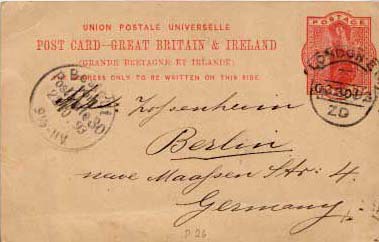 UNION POSTALE UNIVERSELLE
POST CARD—GREAT BRITAIN & IRELAND
(GRANDE BRETAGNE ET IRLANDE)
ADDRESS ONLY TO BE WRITTEN ON THIS SIDE.
POSTAGE
LONDON E
ZD
Zossenheim
Berlin
neue Maassen Str: 4.
Germany
P 26